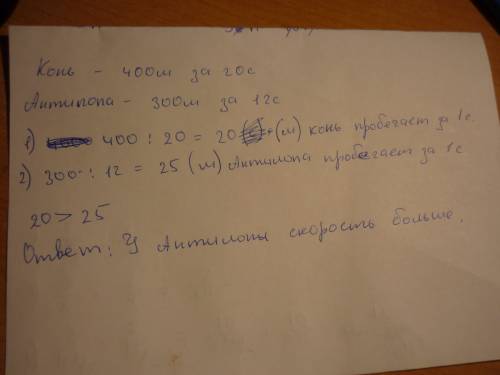 Конь - 400м за 20с
Антилопа - 300м за 12с
1) 400 : 20 = 20 (м) конь пробегает за 1с.
2) 300 : 12 = 25 (м) Антилопа пробегает за 1с
20 > 25
Ответ: У Антилопы скорость больше.